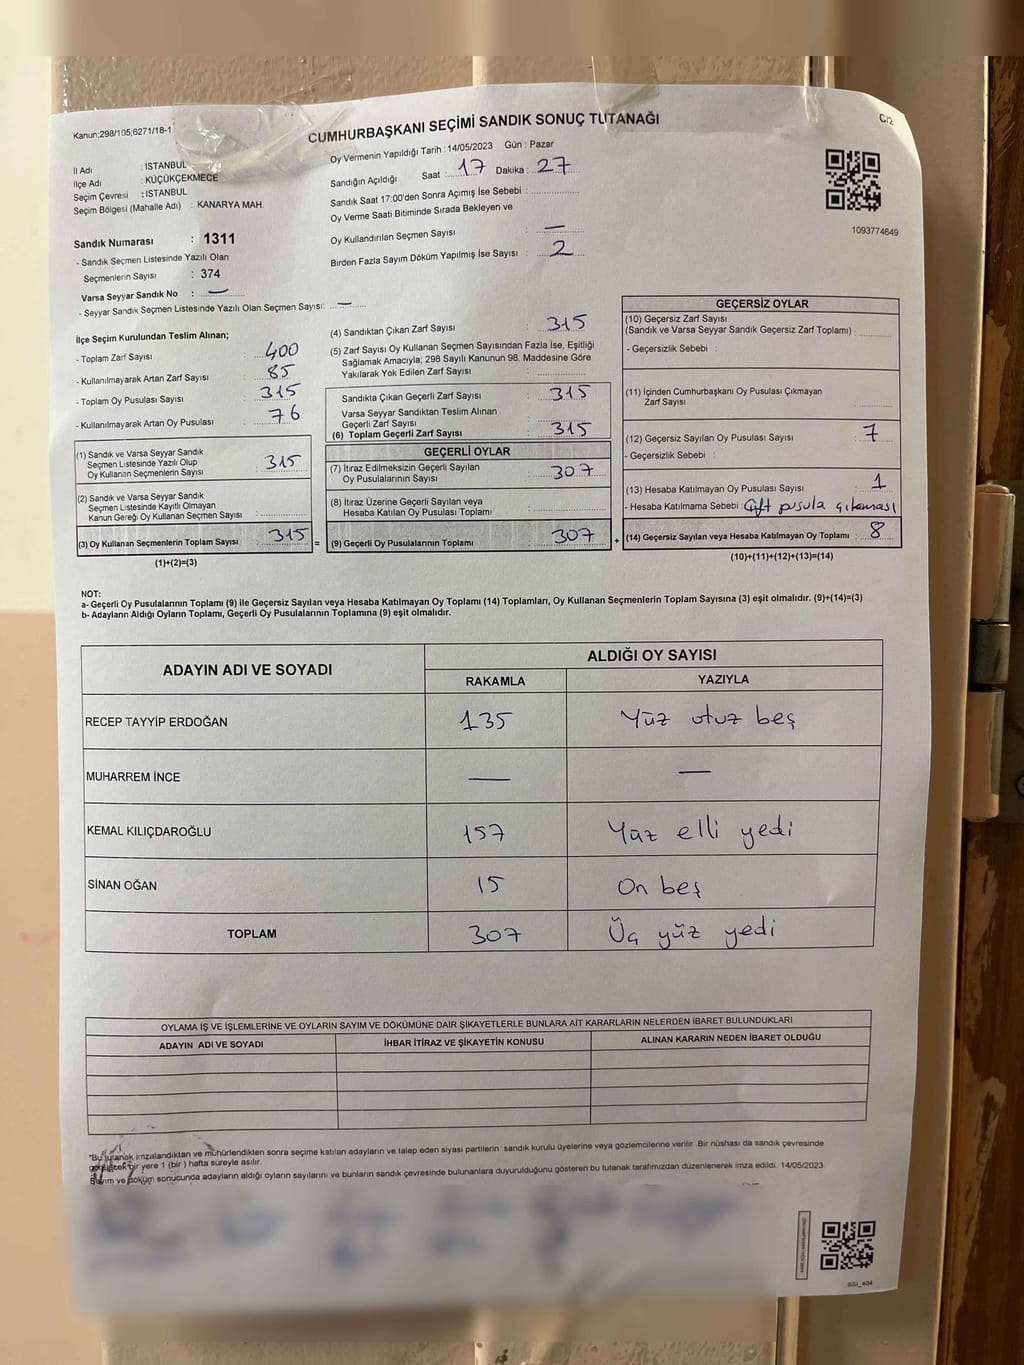 Kanun;298/105;6271/18-1
CUMHURBAŞKANI SEÇİMİ SANDIK SONUÇ TUTANAĞI
C/2
İl Adı : İSTANBUL
İlçe Adı : KÜÇÜKÇEKMECE
Seçim Çevresi : İSTANBUL
Seçim Bölgesi (Mahalle Adı) : KANARYA MAH.
Sandık Numarası : 1311
- Sandık Seçmen Listesinde Yazılı Olan
Seçmenlerin Sayısı : 374
Varsa Seyyar Sandık No : —
- Seyyar Sandık Seçmen Listesinde Yazılı Olan Seçmen Sayısı: —
Oy Vermenin Yapıldığı Tarih : 14/05/2023 Gün : Pazar
Sandığın Açıldığı Saat : 17 Dakika : 27
Sandık Saat 17:00'den Sonra Açımış İse Sebebi :
Oy Verme Saati Bitiminde Sırada Bekleyen ve
Oy Kullandırılan Seçmen Sayısı : —
Birden Fazla Sayım Döküm Yapılmış İse Sayısı : 2
1093774649
İlçe Seçim Kurulundan Teslim Alınan;
- Toplam Zarf Sayısı : 400
- Kullanılmayarak Artan Zarf Sayısı : 85
- Toplam Oy Pusulası Sayısı : 315
- Kullanılmayarak Artan Oy Pusulası : 76
(1) Sandık ve Varsa Seyyar Sandık
Seçmen Listesinde Yazılı Olup
Oy Kullanan Seçmenlerin Sayısı : 315
(2) Sandık ve Varsa Seyyar Sandık
Seçmen Listesinde Kayıtlı Olmayan
Kanun Gereği Oy Kullanan Seçmen Sayısı :
(3) Oy Kullanan Seçmenlerin Toplam Sayısı : 315 =
(1)+(2)=(3)
(4) Sandıktan Çıkan Zarf Sayısı : 315
(5) Zarf Sayısı Oy Kullanan Seçmen Sayısından Fazla İse, Eşitliği
Sağlamak Amacıyla; 298 Sayılı Kanunun 98. Maddesine Göre
Yakılarak Yok Edilen Zarf Sayısı :
Sandıkta Çıkan Geçerli Zarf Sayısı : 315
Varsa Seyyar Sandıktan Teslim Alınan
Geçerli Zarf Sayısı :
(6) Toplam Geçerli Zarf Sayısı : 315
GEÇERLİ OYLAR
(7) İtiraz Edilmeksizin Geçerli Sayılan
Oy Pusulasının Sayısı : 307
(8) İtiraz Üzerine Geçerli Sayılan veya
Hesaba Katılan Oy Pusulası Toplamı :
(9) Geçerli Oy Pusulalarının Toplamı : 307 +
GEÇERSİZ OYLAR
(10) Geçersiz Zarf Sayısı
(Sandık ve Varsa Seyyar Sandık Geçersiz Zarf Toplamı) :
- Geçersizlik Sebebi :
(11) İçinden Cumhurbaşkanı Oy Pusulası Çıkmayan
Zarf Sayısı :
(12) Geçersiz Sayılan Oy Pusulası Sayısı : 7
- Geçersizlik Sebebi :
(13) Hesaba Katılmayan Oy Pusulası Sayısı : 1
- Hesaba Katılmama Sebebi : Çift pusula çıkması
(14) Geçersiz Sayılan veya Hesaba Katılmayan Oy Toplamı : 8
(10)+(11)+(12)+(13)=(14)
NOT:
a- Geçerli Oy Pusulalarının Toplamı (9) ile Geçersiz Sayılan veya Hesaba Katılmayan Oy Toplamı (14) Toplamları, Oy Kullanan Seçmenlerin Toplam Sayısına (3) eşit olmalıdır. (9)+(14)=(3)
b- Adayların Aldığı Oyların Toplamı, Geçerli Oy Pusulalarının Toplamına (9) eşit olmalıdır.
ADAYIN ADI VE SOYADI ALDIĞI OY SAYISI
RAKAMLA YAZIYLA
RECEP TAYYİP ERDOĞAN 135 Yüz otuz beş
MUHARREM İNCE — —
KEMAL KILIÇDAROĞLU 157 Yüz elli yedi
SİNAN OĞAN 15 On beş
TOPLAM 307 Üç yüz yedi
OYLAMA İŞ VE İŞLEMLERİNE VE OYLARIN SAYIM VE DÖKÜMÜNE DAİR ŞİKAYETLERLE BUNLARA AİT KARARLARIN NELERDEN İBARET BULUNDUKLARI
ADAYIN ADI VE SOYADI İHBAR İTİRAZ VE ŞİKAYETİN KONUSU ALINAN KARARIN NEDEN İBARET OLDUĞU
"Bu tutanak imzalandıktan ve mühürlendikten sonra seçime katılan adayların ve talep eden siyasi partilerin sandık kurulu üyelerine veya gözlemcilerine verilir. Bir nüshası da sandık çevresinde
görülecek bir yere 1 (bir ) hafta süreyle asılır.
Sayım ve döküm sonucunda adayların aldığı oyların sayılarını ve bunların sandık çevresinde bulunanlara duyurulduğunu gösteren bu tutanak tarafımızdan düzenlenerek imza edildi. 14/05/2023